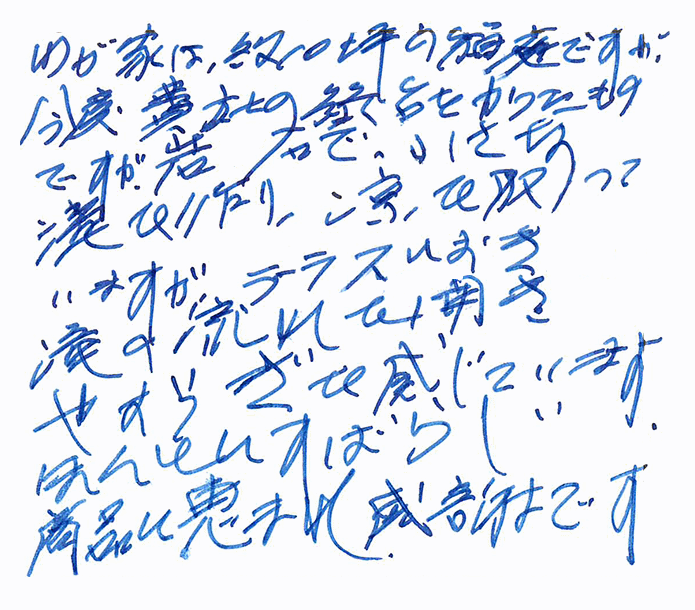 わが家は、約10坪の猫庭ですが、
今度、貴方社の縁台をかったもの
ですが、岩石で、小さな
滝を作り、涼を取って
いますが、テラスにおき
滝の流れを聞き
やすらぎを感じています。
ほんとにすばらしい
商品に恵まれ感謝です